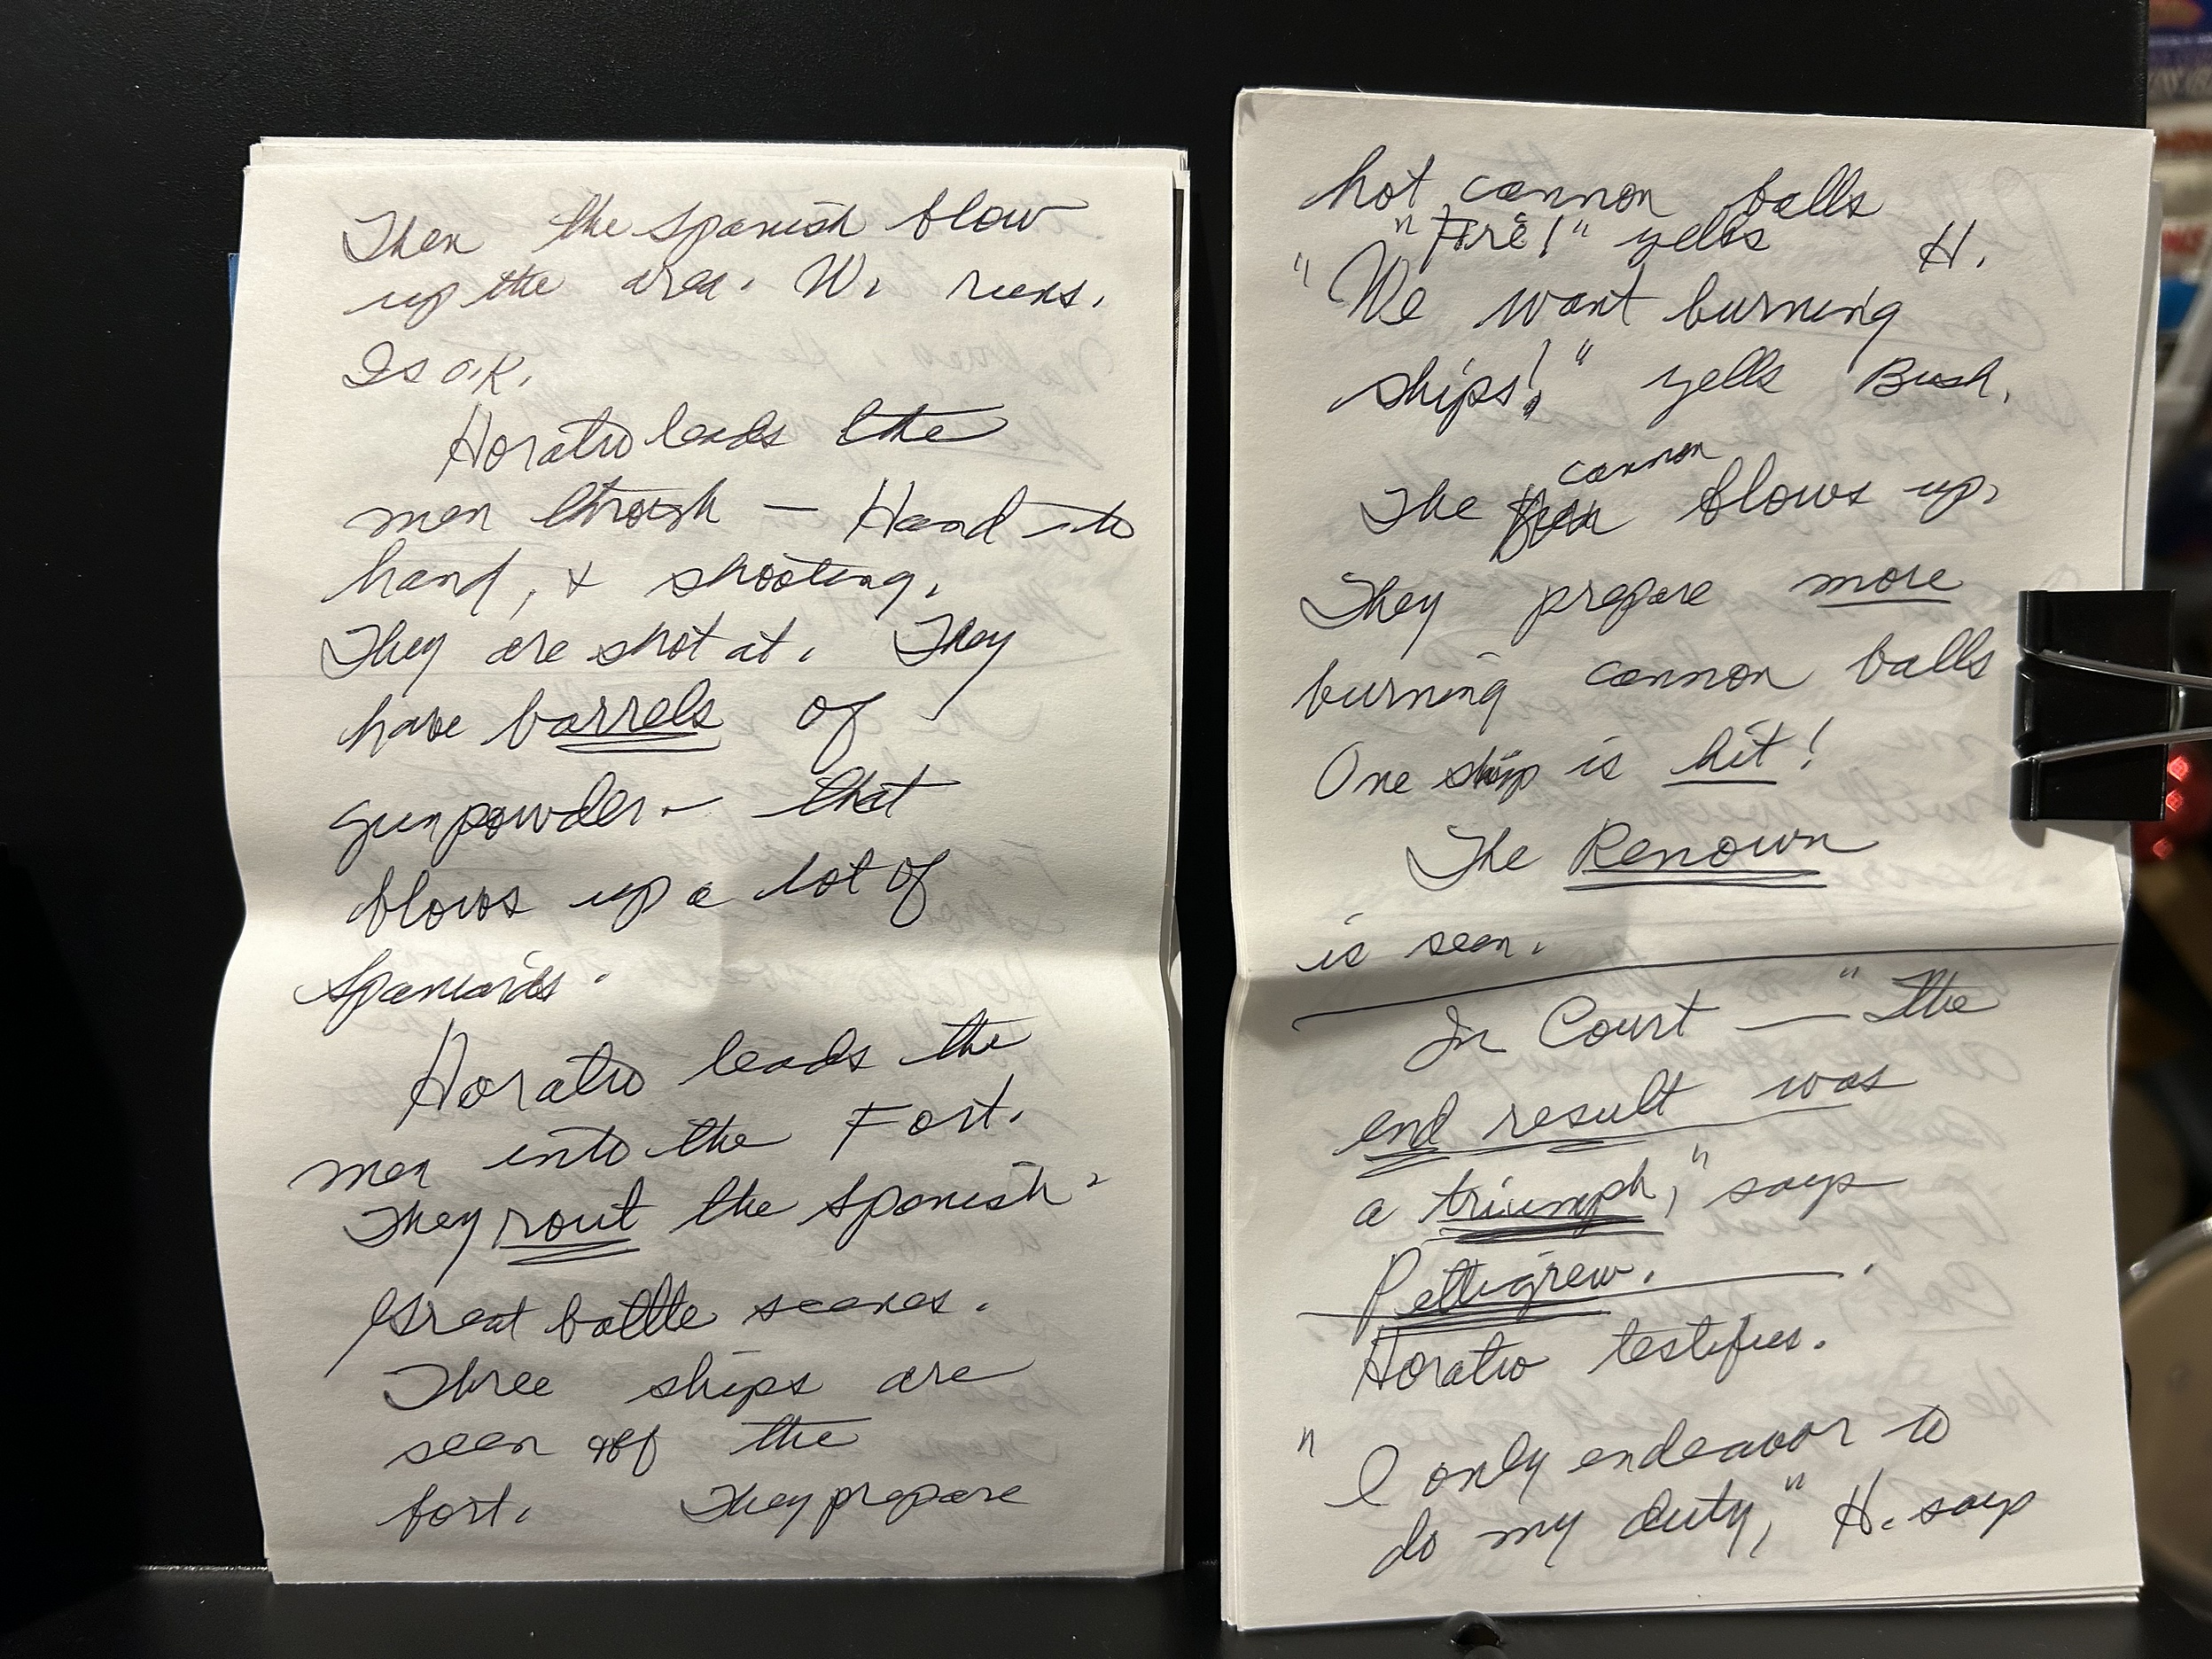 Then the Spanish blow
up the area. W. runs.
Is O.K.
Horatio leads the
men through — Hand to
hand, & shooting.
They are shot at. They
have barrels of
gunpowder — that
blows up a lot of
Spaniards.
Horatio leads the
men into the Fort.
They rout the Spanish.
Great battle scenes.
Three ships are
seen off the
fort. They prepare
hot cannon balls
"Fire!" yells H.
"We want burning
ships!" yells Bush.
cannon
The blows up.
They prepare more
burning cannon balls
One ship is hit!
The Renown
is seen.
In Court — "The
end result was
a triumph," says
Pettigrew.
Horatio testifies.
"I only endeavor to
do my duty," H. says